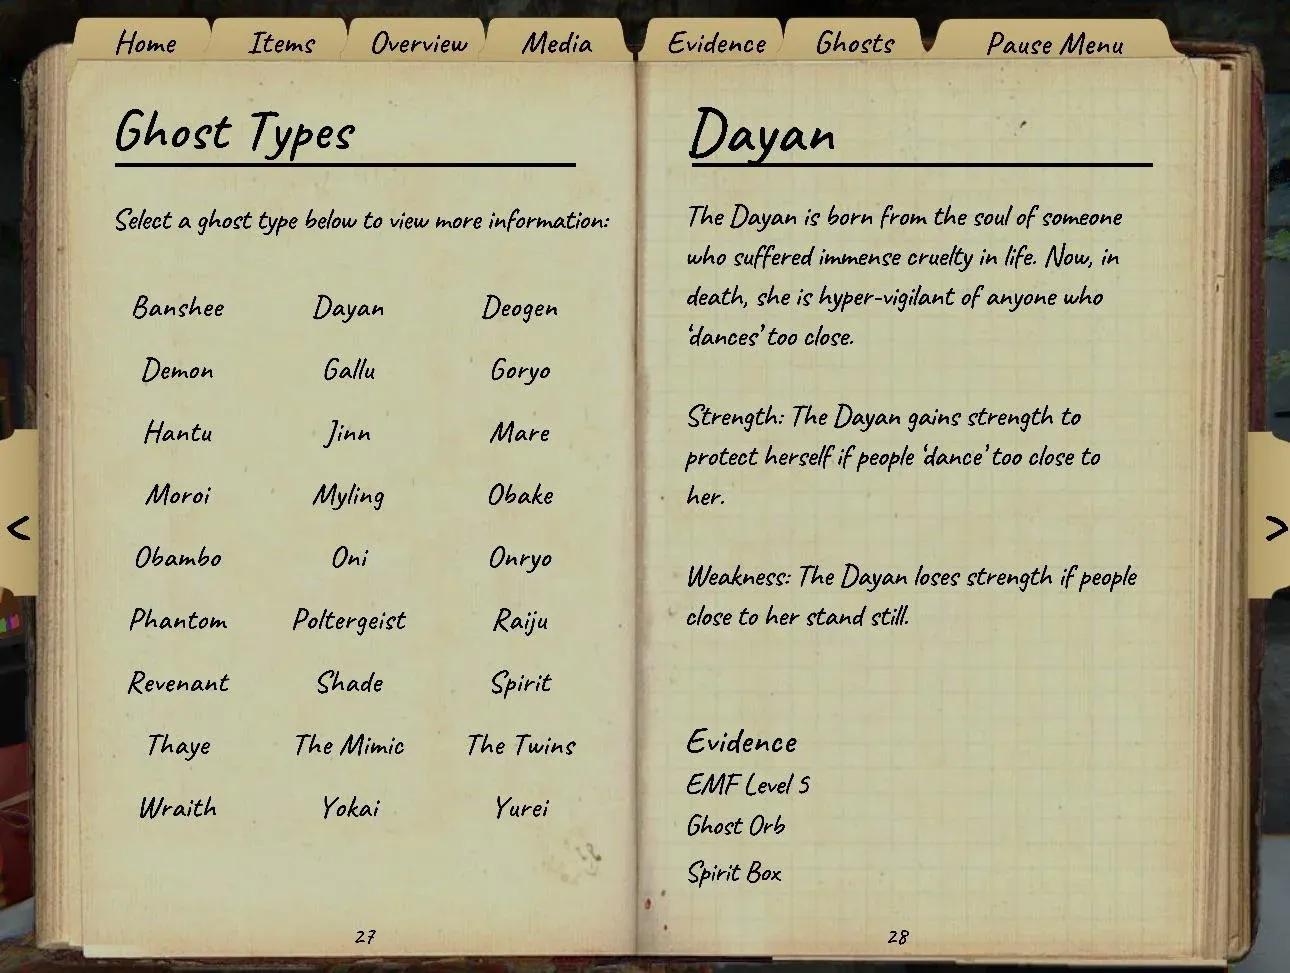 Home Items Overview Media Evidence Ghosts Pause Menu
Ghost Types
Select a ghost type below to view more information:
Banshee Dayan Deogen
Demon Gallu Goryo
Hantu Jinn Mare
Moroi Myling Obake
Obambo Oni Onryo
Phantom Poltergeist Raiju
Revenant Shade Spirit
Thaye The Mimic The Twins
Wraith Yokai Yurei
27
<
Dayan
The Dayan is born from the soul of someone
who suffered immense cruelty in life. Now, in
death, she is hyper-vigilant of anyone who
‘dances’ too close.
Strength: The Dayan gains strength to
protect herself if people ‘dance’ too close to
her.
Weakness: The Dayan loses strength if people
close to her stand still.
Evidence
EMF Level 5
Ghost Orb
Spirit Box
28
>